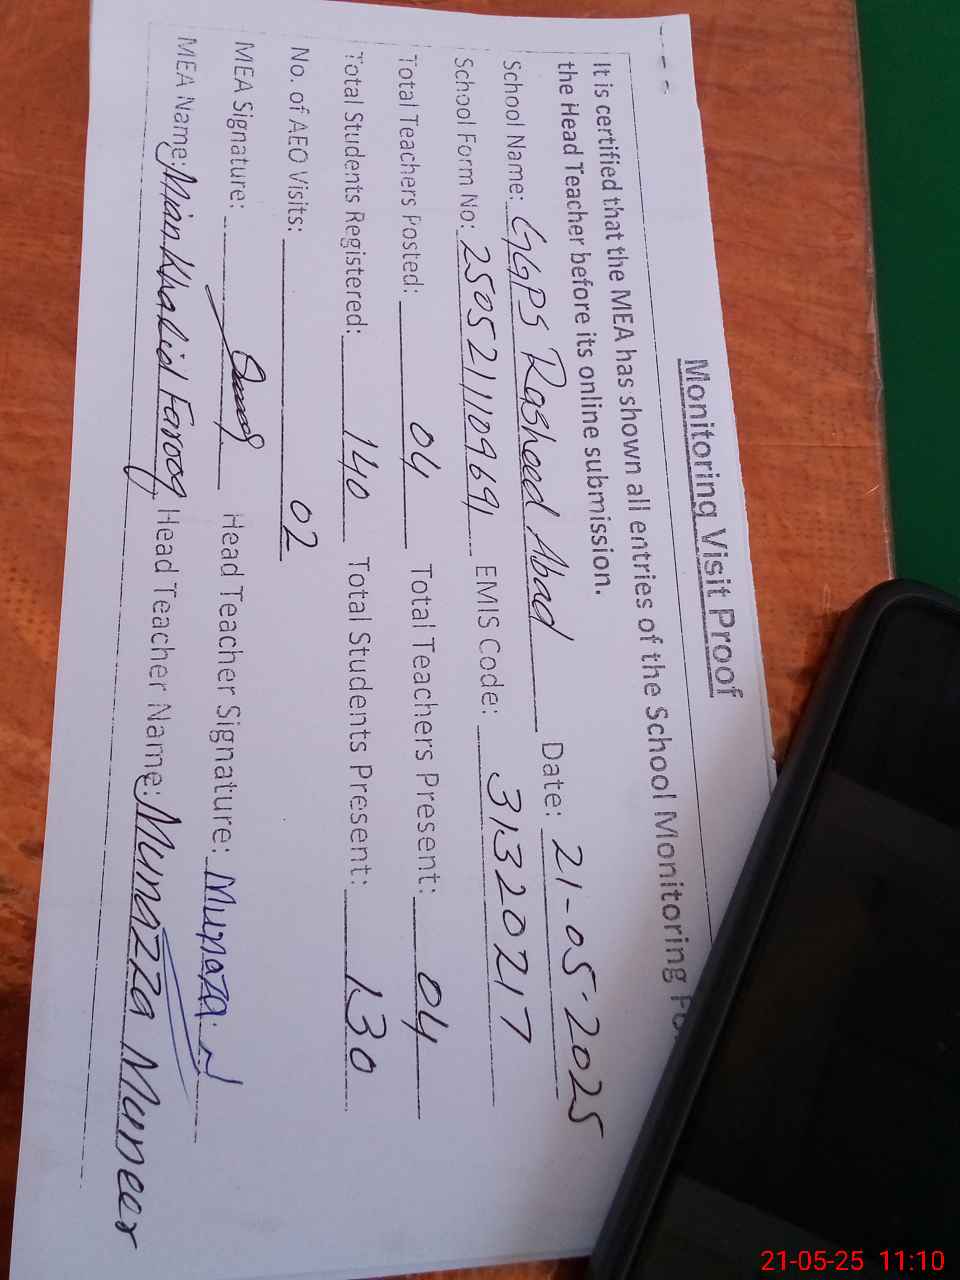 Monitoring Visit Proof
It is certified that the MEA has shown all entries of the School Monitoring Fo
the Head Teacher before its online submission.
School Name: GGPS Rasheed Abad Date: 21-05-2025
School Form No: 25052111109691 EMIS Code: 31320217
Total Teachers Posted: 04 Total Teachers Present: 04
Total Students Registered: 140 Total Students Present: 130
No. of AEO Visits: 02
MEA Signature: Head Teacher Signature: Munaza. N
MEA Name: Mian Khalid Farooq Head Teacher Name: Munazza Muneer
21-05-25 11:10